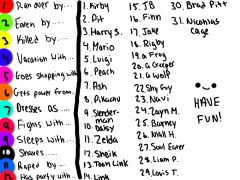 1 Ran over by....
2 Eaten by ....
3 Killed by....
4 Vacation with...
5 Goes shopping with
6 Gets power from...
7 Dresses as ....
8 Fights with...
9 Sleeps with...
10 Shares.....
11 Raped by...
12 Has party with...
1. Kirby
2. Pit
3. Harry S.
4. Mario
5. Luigi
6. Peach
7. Ash
8. Pikachu
9. Slenderman
10. Daisy
11. Zelda
12. Sheik
13. Toon Link
14. Link
15. JB
16. Finn
17. Jake
18. Rigby
19. a Frog
20. a Creeper
21. a Wolf
22. Shy Guy
23. Navi
24. Zayn M.
25. Barney
26. Niall H.
27. Soul Eater
28. Liam P.
29. Louis T.
30. Brad Pitt
31. Nicholas
Cage
HAVE
FUN!